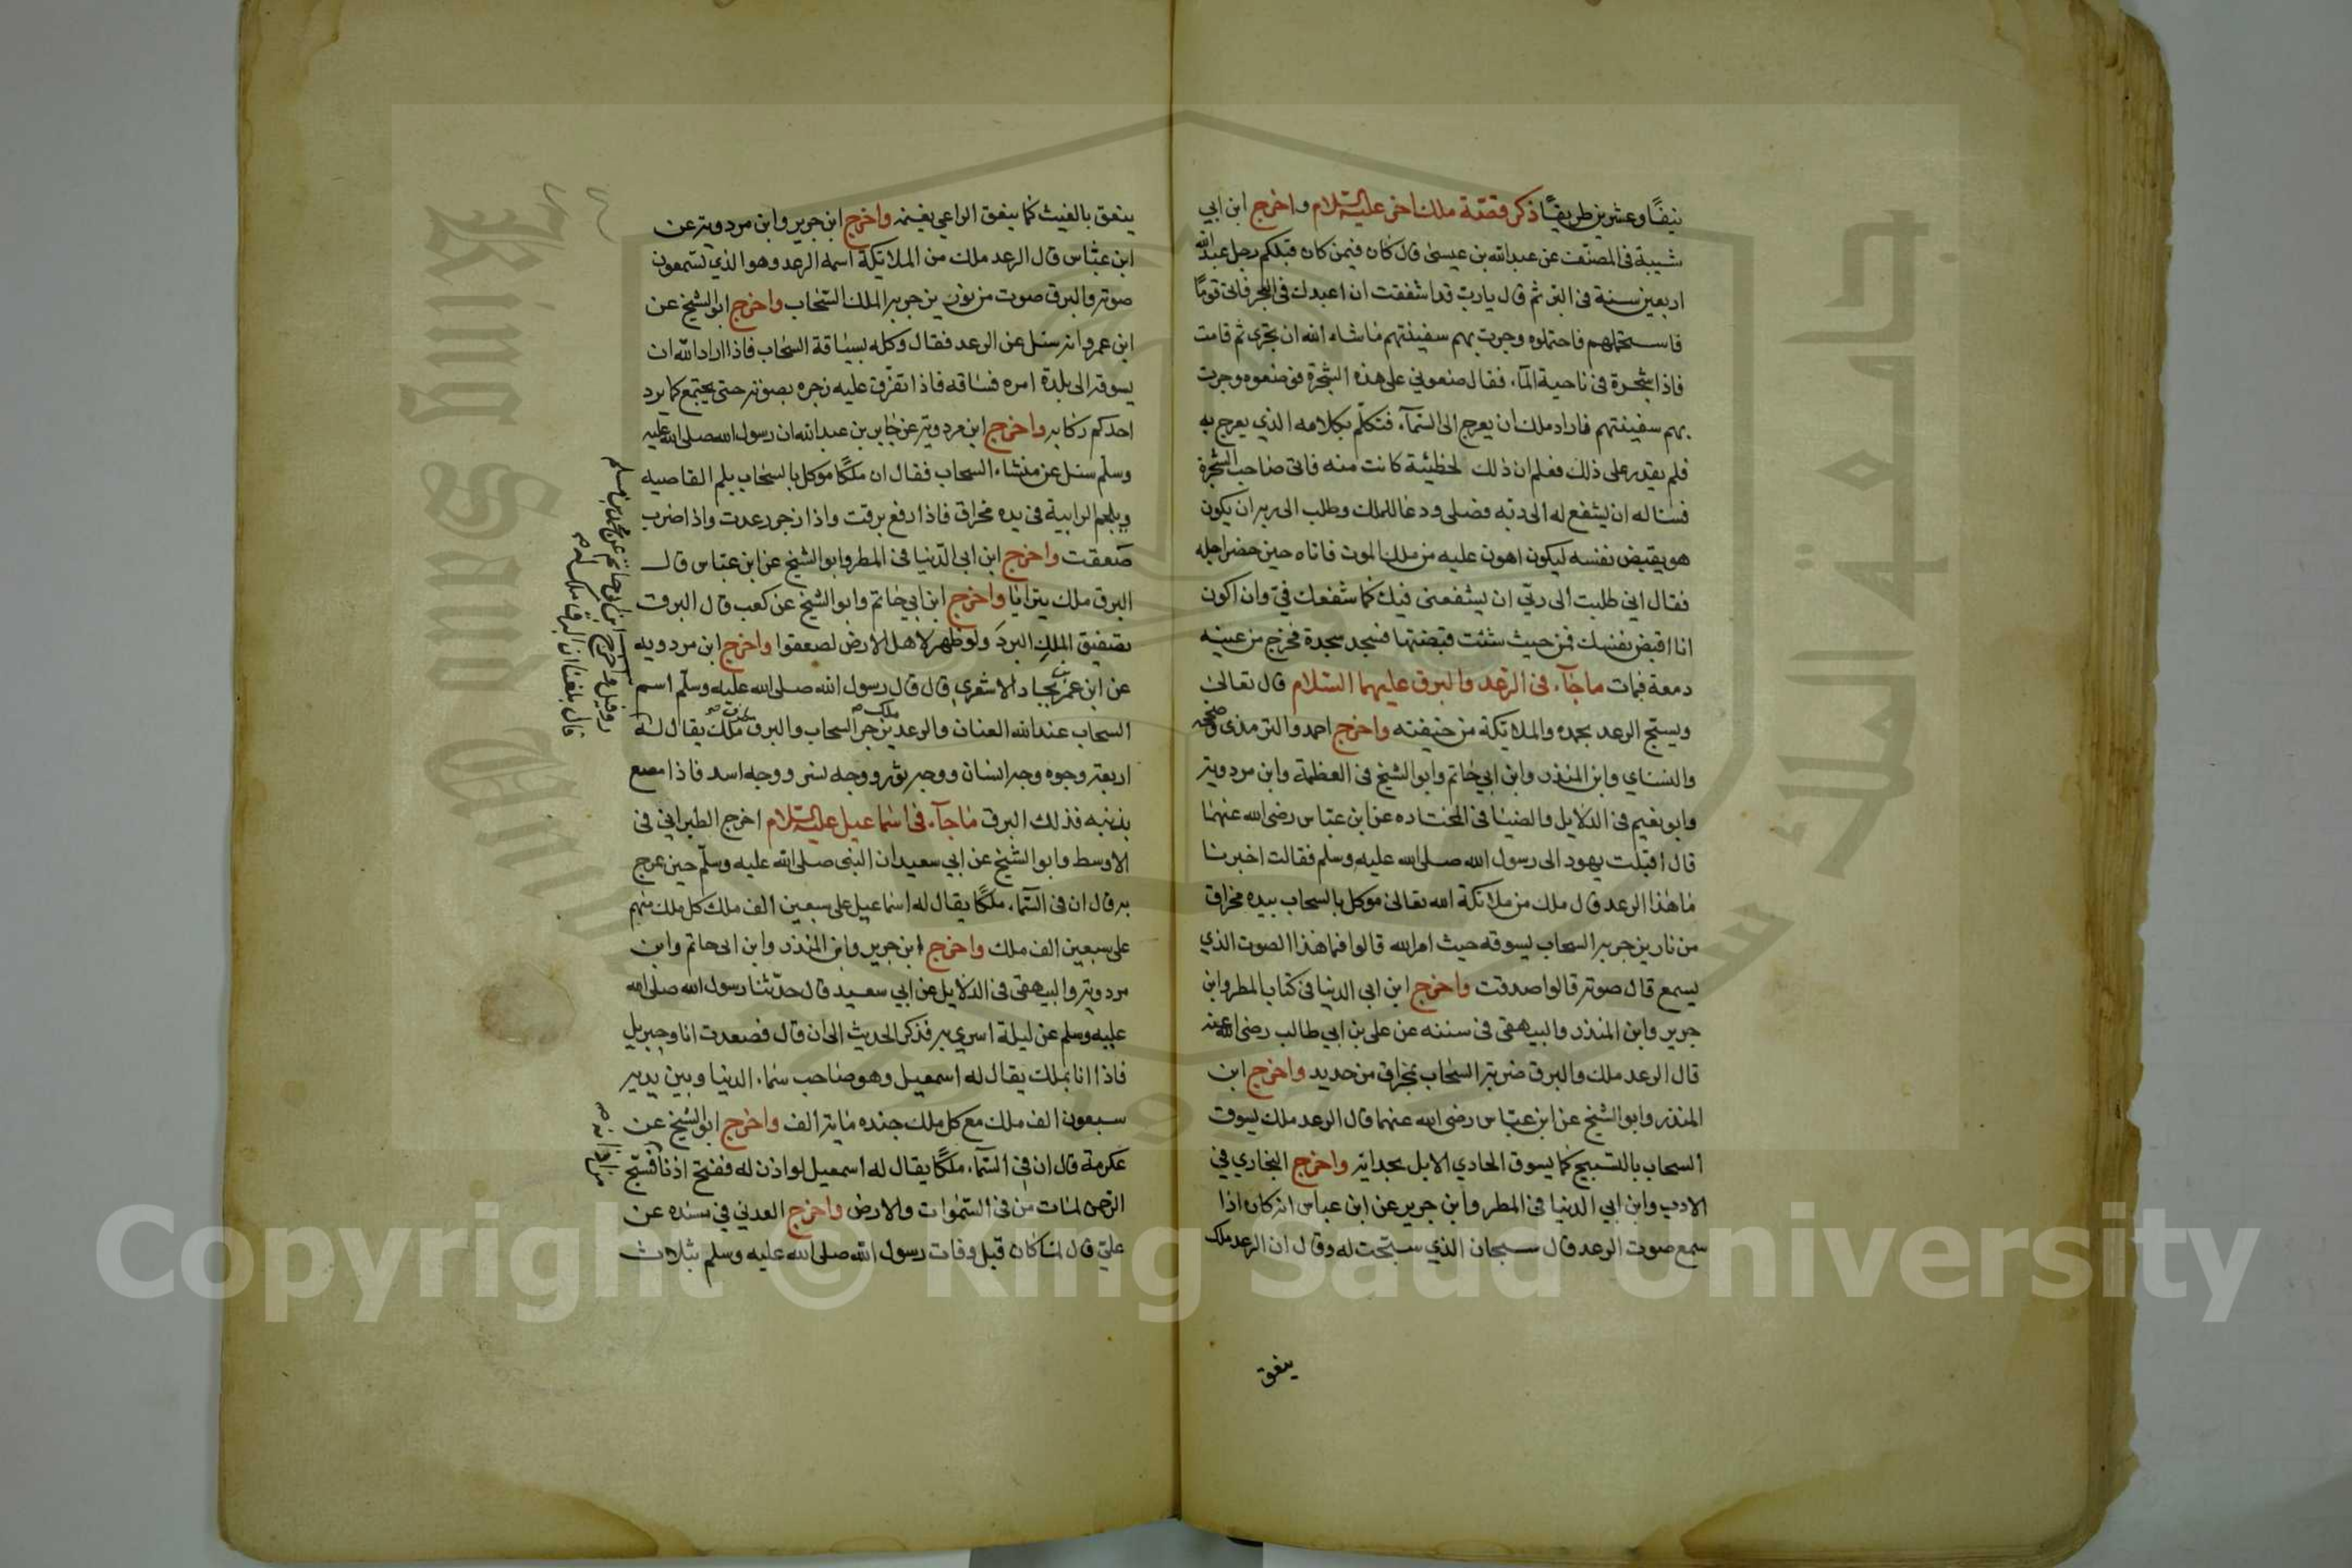 نيفًا وعشرين طريقًا ذكر قصّة ملك اخر عليه السّلام واخرج ابن ابي
شيبة فى المصنّف عن عبدالله بن عيسىٰ قال كان فيمن كان قبلكم رجل عبد الله
اربعين سنة فى البرّ ثم قال يا ربّ قد اشفقت ان اعبدك فى البحر فاتى قومًا
فاستحملهم فاحتملوه وجرت بهم سفينتهم ما شاء الله ان تجرى ثم قامت
فاذا شجرة فى ناحية المآء فقال ضعوني على هذه الشجرة فوضعوه وجرت
بهم سفينتهم فاراد ملك ان يعرج الى السّمآء فتكلّم بكلامه الذي يعرج به
فلم يقدر على ذلك فعلم ان ذلك لخطيئة كانت منه فاتى صاحب الشجرة
فساله ان يشفع له الى ربّه فصلى ودعا للملك وطلب الى ربه ان يكون
هو يقبض نفسه ليكون اهون عليه من ملك الموت فاتاه حين حضر اجله
فقال اني طلبت الى ربّي ان يشفعنى فيك كما شفعك فيّ وان اكون
انا اقبض نفسك فمن حيث شئت قبضتها فسجد سجدة فخرج من عينه
دمعة فمات ماجآء فى الرّعد والبرق عليهما السّلام قال تعالىٰ
ويسبّح الرعد بحمده والملائكة من خيفته واخرج احمد والترمذى وصححه
والنساي وابن المنذر وابن ابي حاتم وابو الشيخ فى العظمة وابن مردويه
وابو نعيم فى الدلايل والضيا فى المختاره عن ابن عباس رضى الله عنهما
قال اقبلت يهود الى رسول الله صلى الله عليه وسلم فقالت اخبرنا
ما هذا الرعد قال ملك من ملائكة الله تعالىٰ موكل بالسحاب بيده مخراق
من نار يزجر به السحاب يسوقه حيث امر الله قالوا فما هذا الصوت الذي
يسمع قال صوته قالوا صدقت واخرج ابن ابى الدنيا فى كتاب المطر وابن
جرير وابن المنذر والبيهقى فى سننه عن على بن ابي طالب رضى الله عنه
قال الرعد ملك والبرق ضربه السحاب بمخراق من حديد واخرج ابن
المنذر وابو الشيخ عن ابن عبّاس رضى الله عنهما قال الرعد ملك يسوق
السحاب بالتسبيح كما يسوق الحادي الابل بحدائه واخرج البخاري في
الادب وابن ابي الدنيا فى المطر وابن جرير عن ابن عباس انه كان اذا
سمع صوت الرعد قال سبحان الذي سبّحت له وقال ان الرعد ملك
ينعق
ينعق بالغيث كما ينعق الراعي بغنمه واخرج ابن جرير وابن مردويه عن
ابن عبّاس قال الرعد ملك من الملائكة اسمه الرعد وهو الذي تسمعون
صوته والبرق صوت من نور يزجر به الملك السّحاب واخرج ابو الشيخ عن
ابن عمرو انه سئل عن الرعد فقال وكله بسياقة السحاب فاذا اراد الله ان
يسوقه الى بلدة امره فساقه فاذا تفرّق عليه زجره بصوته حتى يجتمع كما يرد
احدكم ركابه واخرج ابن مردويه عن جابر بن عبدالله ان رسول الله صلى الله عليه
وسلّم سئل عن منشاء السحاب فقال ان ملكًا موكل بالسحاب يلم القاصيه
ويلحم الرابية في يده مخراق فاذا رفع برقت واذا زجر رعدت واذا ضرب
صعقت واخرج ابن ابى الدّنيا فى المطر وابو الشيخ عن ابن عبّاس قال
البرق ملك يترايا واخرج ابن ابي حاتم وابو الشيخ عن كعب قال البرق
تصفيق الملك البرد ولو ظهر لاهل الارض لصعقوا واخرج ابن مردويه
عن ابن عمر بن بجاد الاشعري قال قال رسول الله صلى الله عليه وسلّم اسم
السحاب عند الله العنان والرعد ملك يزجر السحاب والبرق طرف ملك يقال له
روفيل واخرج ابن ابى حاتم عن محمد بن مسلم
قال بلغنا ان البرق ملك له
اربعة وجوه وجه انسان ووجه ثور ووجه نسر ووجه اسد فاذا مصع
بذنبه فذلك البرق ماجآء فى اسماعيل عليه السّلام اخرج الطبراني فى
الاوسط وابو الشيخ عن ابي سعيد ان النبى صلى الله عليه وسلّم حين عرج
به قال ان فى السّمآء ملكًا يقال له اسماعيل على سبعين الف ملك كل ملك منهم
على سبعين الف ملك واخرج ابن جرير وابن المنذر وابن ابى حاتم وابن
مردويه والبيهقى فى الدلايل عن ابي سعيد قال حدّثنا رسول الله صلى الله
عليه وسلم عن ليلة اسري به فذكر الحديث الى ان قال فصعدت انا وجبريل
فاذا انا بملك يقال له اسمعيل وهو صاحب سماء الدنيا وبين يديه
سبعون الف ملك مع كل ملك جنده ماية الف واخرج ابو الشيخ عن
عكرمة قال ان فى السّمآء ملكًا يقال له اسمعيل لو اذن له ففتح اذنا فسبّح
من اذانه
الرّحمن لمات من فى السّمٰوات والارض واخرج العدني في مسنده عن
عليّ قال لما كان قبل وفات رسول الله صلى الله عليه وسلم بثلاث
King Saud University
جامعة الملك سعود
1957
Copyright © King Saud University